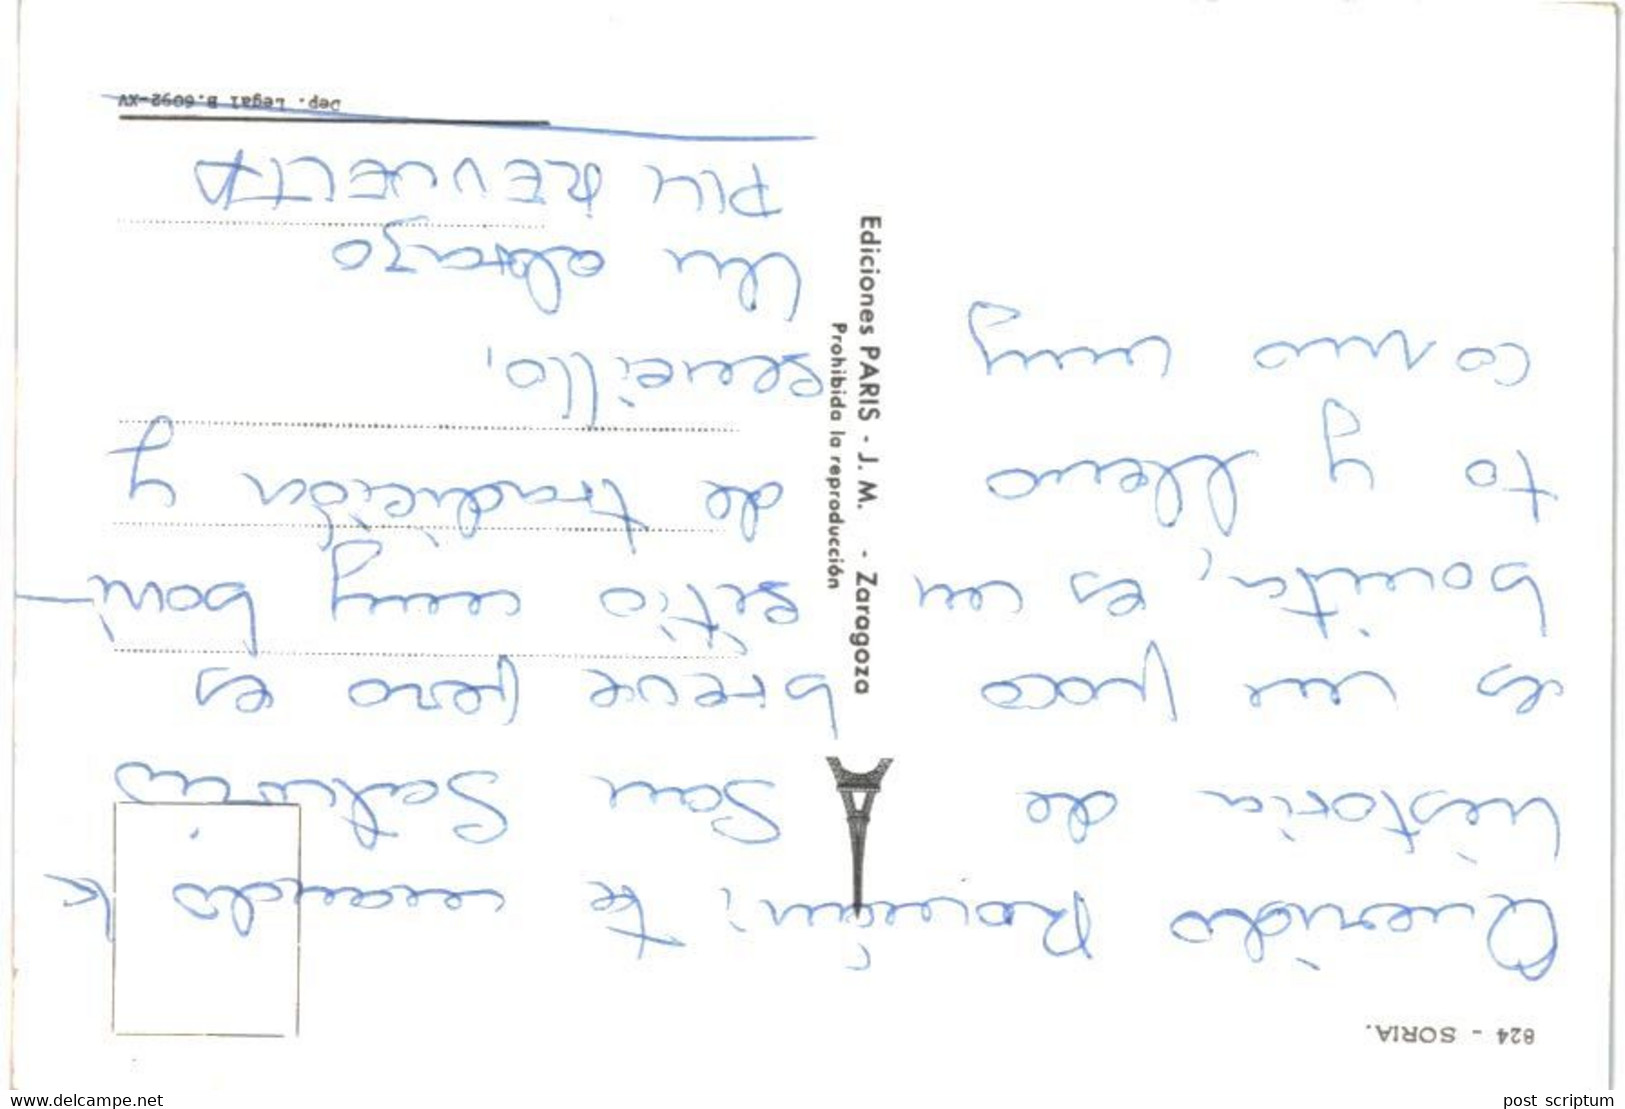 824 - SORIA.
Querido Román: te mando la
historia de San Saturio
es un poco breve pero es
bonita, es un sitio muy boni-
to y lleno de tradición y
como muy sencillo.
Un abrazo
PILI REVUELTA
Dep. Legal B.6092-XV
Ediciones PARIS - J. M. - Zaragoza
Prohibida la reproducción
www.delcampe.net
post scriptum